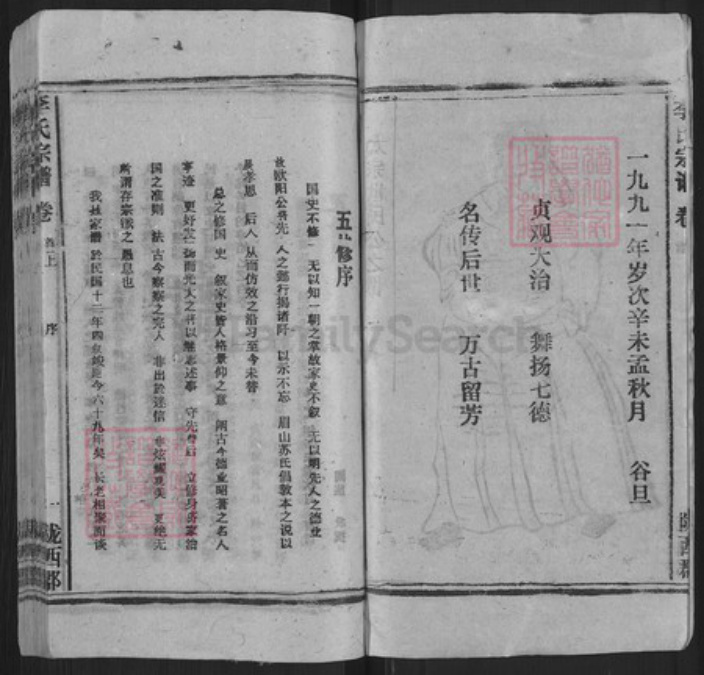 一九九一年岁次辛未孟秋月 谷旦
贞观大治 舞扬七德
名传后世 万古留芳
李氏宗谱 卷
五修序
国史不修 无以知一朝之掌故家史不叙 无以明先人之德业
故欧阳公将先人之懿行揭诸阡 以示不忘 眉山苏氏倡敦本之说以
展孝思 后人从而仿效之沿习至今未替
总之修国史 叙家史皆人格景仰之意 阐古今德业昭著之名人
事迹 更好发扬而光大之书以继志述事 守先 后 立修身齐家治
国之准则 法古今察察之完人 非出於迷信 非炫耀 更绝无
所谓存宗 之愚息也
我姓家谱於民国十二年四修 距今六十九年矣 长老相聚而谈
李氏宗谱 卷 上 序 一 陇西郡
FamilySearch